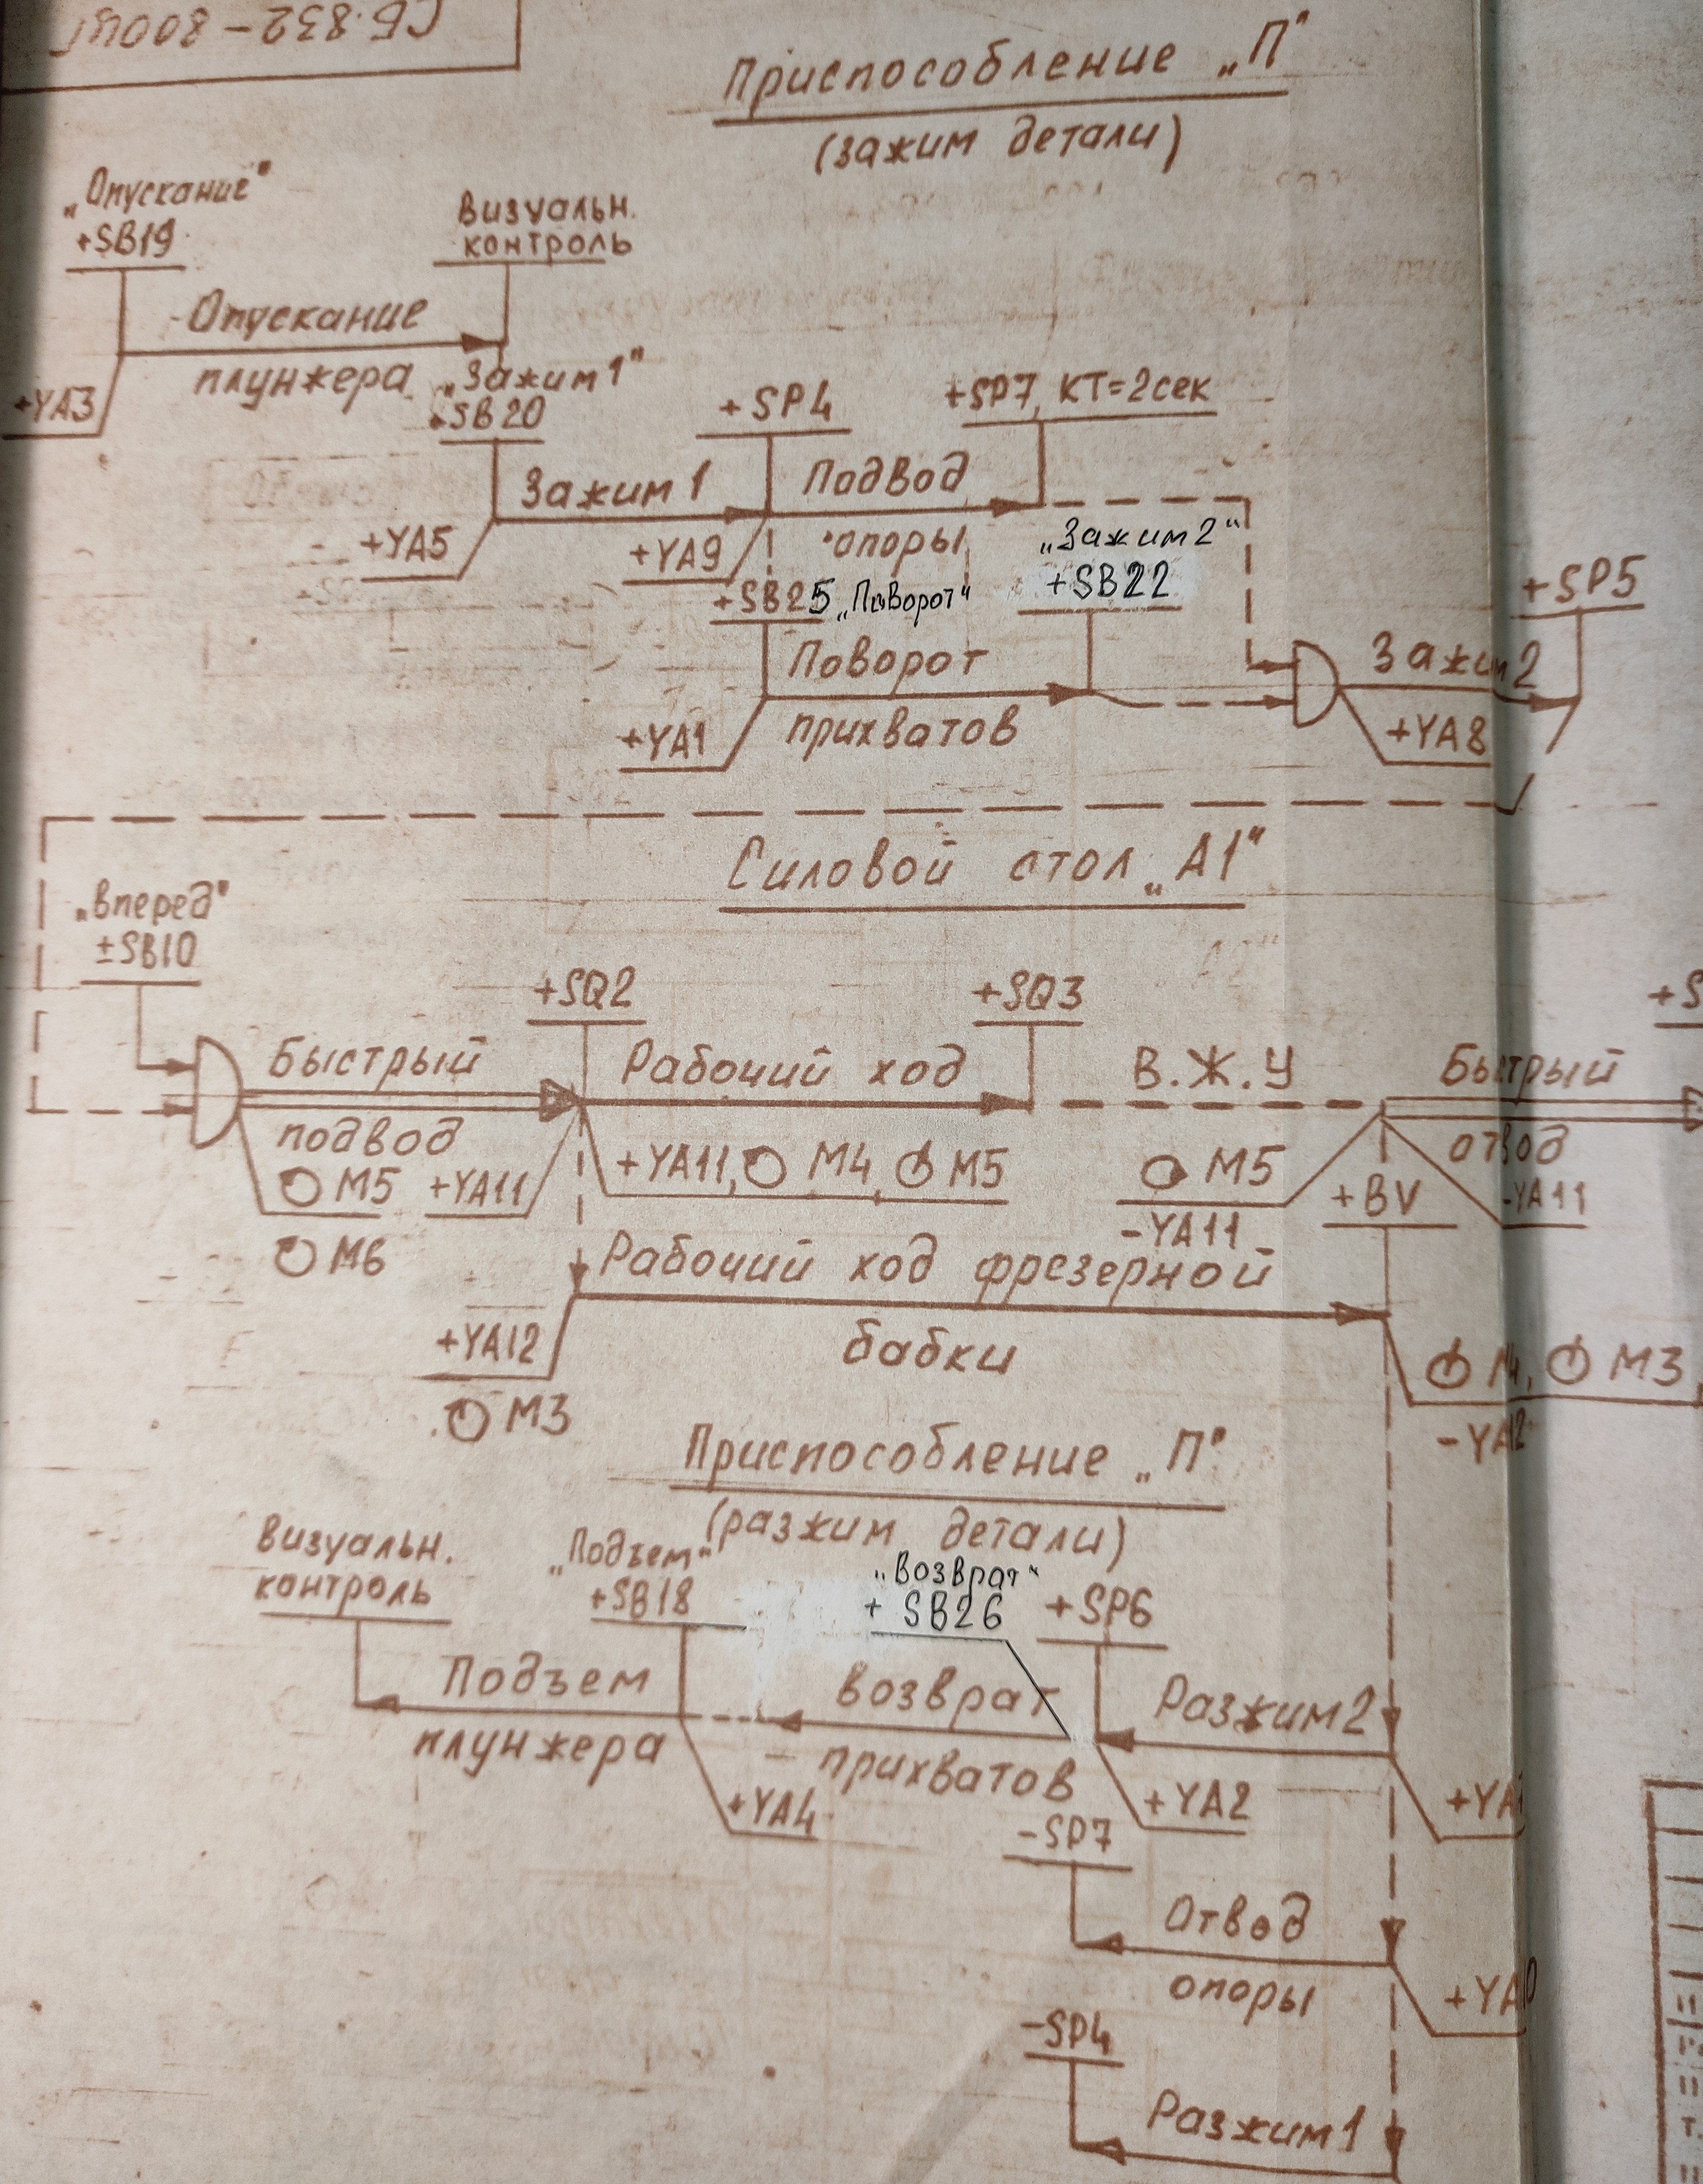 СБ.832-800
Приспособление „П"
(зажим детали)
„Опускание"
+SB19
Визуальн.
контроль
Опускание
плунжера
+YA3
„Зажим 1"
+SB20
+SP4
+SP7, КТ=2сек
Зажим 1
Подвод
опоры
+YA5
+YA9
„Зажим 2"
+SB22
+SB25 „Поворот"
+SP5
Поворот
прихватов
+YA1
Зажим 2
+YA8
Силовой стол „А1"
„Вперед"
±SB10
+SQ2
+SQ3
+S
Быстрый
подвод
Рабочий ход
В.Ж.У
Быстрый
отвод
М5
+YA11
+YA11, М4, М5
М5
-YA11
+BV
-YA11
М6
Рабочий ход фрезерной
бабки
+YA12
М3
М4, М3
-YA12
Приспособление „П"
(разжим детали)
Визуальн.
контроль
„Подъем"
+SB18
„Возврат"
+ SB26
+SP6
Подъем
плунжера
Возврат
прихватов
Разжим 2
+YA4
+YA2
+YA
-SP7
Отвод
опоры
-SP4
Разжим 1